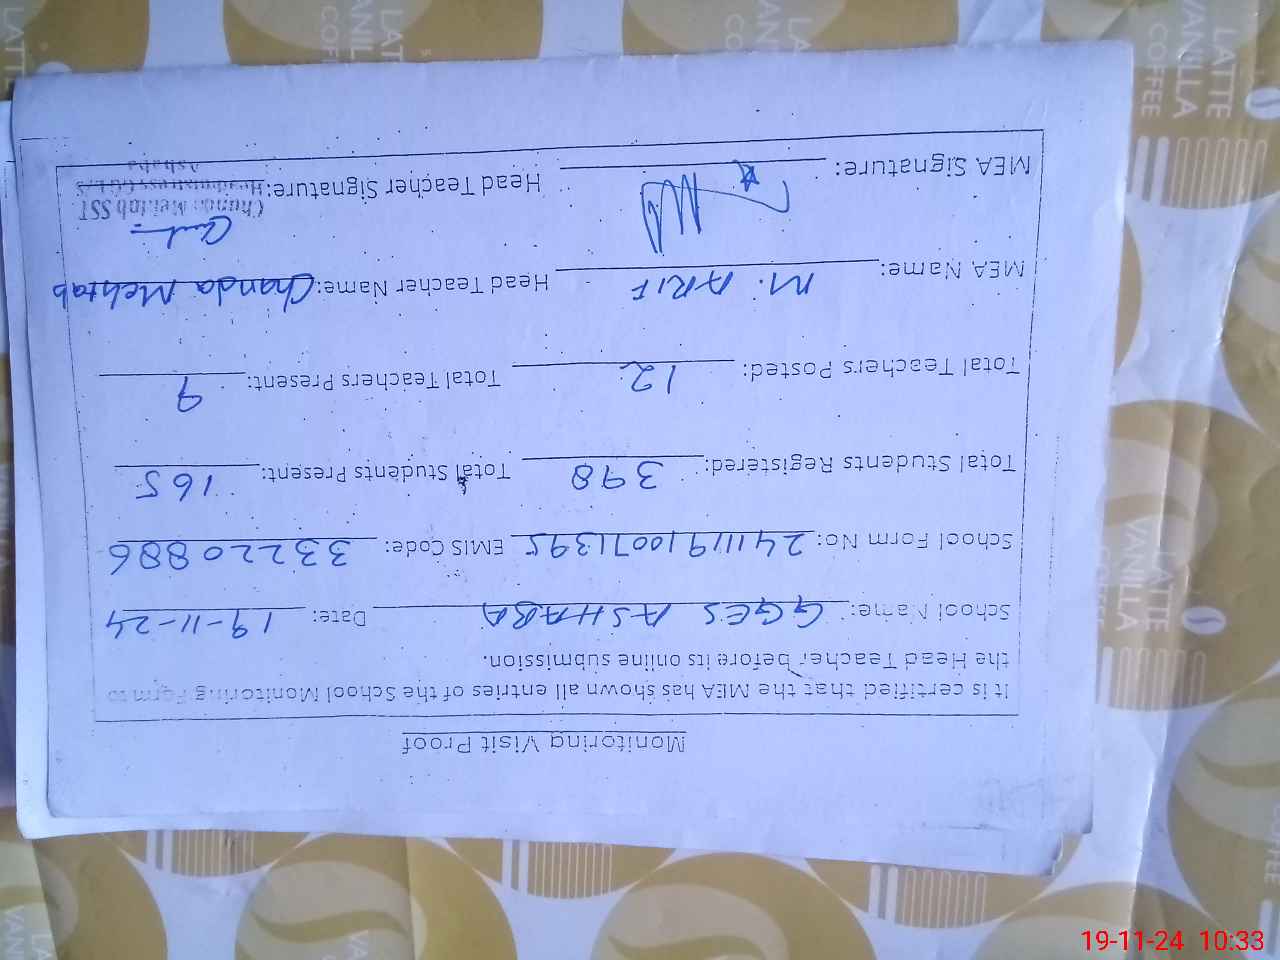 Monitoring Visit Proof
It is certified that the MEA has shown all entries of the School Monitoring Form to
the Head Teacher before its online submission.
School Name: GGES ASHABA Date: 19-11-24
School Form No: 24111910071395 EMIS Code: 33220886
Total Students Registered: 398 Total Students Present: 165
Total Teachers Posted: 12 Total Teachers Present: 9
MEA Name: M. ARIF Head Teacher Name: Chanda Mehtab
MEA Signature: Head Teacher Signature:
Chanda Mehtab SST
Headmistress
Ashaba
LATTE
VANILLA
COFFEE
19-11-24 10:33